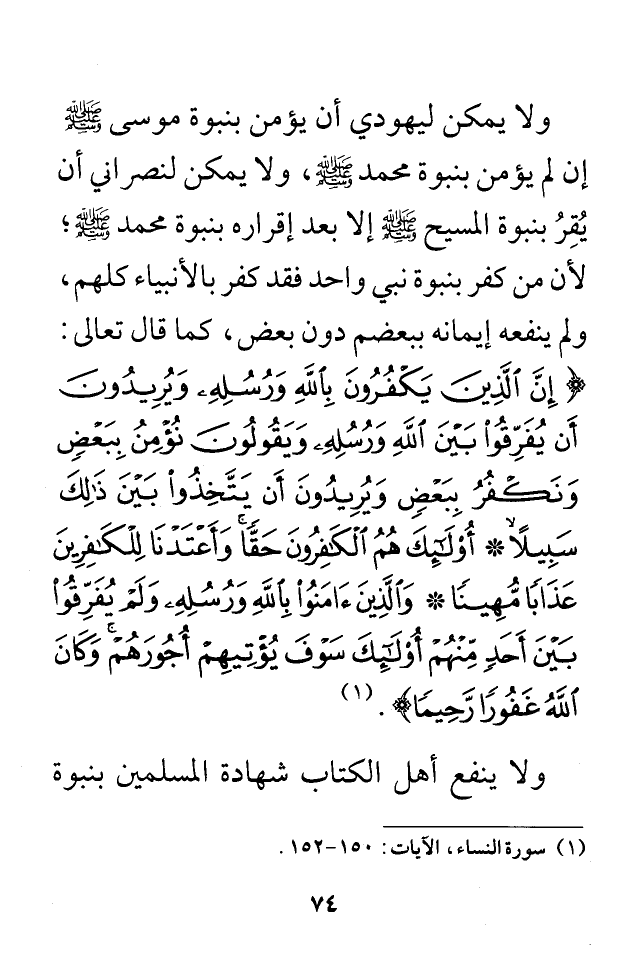 ولا يمكن ليهودي أن يؤمن بنبوة موسى ﷺ
إن لم يؤمن بنبوة محمد ﷺ، ولا يمكن لنصراني أن
يُقِرُ بنبوة المسيح ﷺ إلا بعد إقراره بنبوة محمد ﷺ؛
لأن من كفر بنبوة نبي واحد فقد كفر بالأنبياء كلهم،
ولم ينفعه إيمانه ببعضهم دون بعض، كما قال تعالى:
﴿إِنَّ ٱلَّذِينَ يَكْفُرُونَ بِٱللَّهِ وَرُسُلِهِۦ وَيُرِيدُونَ
أَن يُفَرِّقُوا۟ بَيْنَ ٱللَّهِ وَرُسُلِهِۦ وَيَقُولُونَ نُؤْمِنُ بِبَعْضٍ
وَنَكْفُرُ بِبَعْضٍ وَيُرِيدُونَ أَن يَتَّخِذُوا۟ بَيْنَ ذَٰلِكَ
سَبِيلًا ۙ * أُو۟لَـٰٓئِكَ هُمُ ٱلْكَـٰفِرُونَ حَقًّا ۚ وَأَعْتَدْنَا لِلْكَـٰفِرِينَ
عَذَابًا مُّهِينًا * وَٱلَّذِينَ ءَامَنُوا۟ بِٱللَّهِ وَرُسُلِهِۦ وَلَمْ يُفَرِّقُوا۟
بَيْنَ أَحَدٍ مِّنْهُمْ أُو۟لَـٰٓئِكَ سَوْفَ يُؤْتِيهِمْ أُجُورَهُمْ ۗ وَكَانَ
ٱللَّهُ غَفُورًا رَّحِيمًا﴾. (١)
ولا ينفع أهل الكتاب شهادة المسلمين بنبوة
(١) سورة النساء، الآيات: ١٥٠-١٥٢.
٧٤